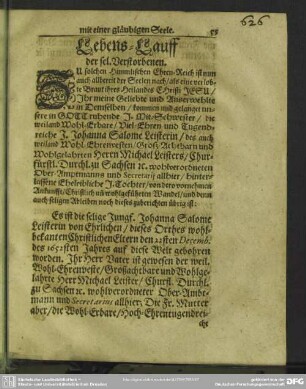 mit einer gläubigen Seele.
55
626
Lebens-Lauff
der sel. Verstorbenen.
ZU solchem Himmlischen Ehren-Reich ist nun
auch allbereit der Seelen nach/ als eine verlob-
te Braut ihres Heilandes Christi JESU/
Ihr meine Geliebte und Anverwandte
in Demselben/ kommen und gelanget un-
sere in GOTT ruhende J. Mit-Schwester/ die
weiland Wohl-Erbare/ Viel-Ehren und Tugend-
reiche J. Johanna Salome Leisterin/ des auch
weiland Wohl Ehrenvesten/ Groß-Achtbarn und
Wohlgelahrten Herrn Michael Leisters/ Chur-
fürstl. Durchl. zu Sachsen ꝛc. wohlverordneten
Ober-Amptmanns und Secretarij allhier/ hinter-
lassene Eheleibliche J. Tochter/ von dero vornehmen
Ankunfft/ Christlich wohlgeführten Wandel/ und denn
auch seligen Ableiben noch dieses zuberichten übrig ist:
Es ist die selige Jungf. Johanna Salome
Leisterin von Ehrlichen/ dieses Orthes wohl-
bekanten Christlichen Eltern den 21sten Decemb.
des 1652sten Jahrs auf diese Welt gebohren
worden. Ihr Herr Vater ist gewesen der weil.
Wohl-Ehrenveste/ Großachtbare und Wohlge-
lahrte Herr Michael Leister/ Churst. Durchl.
zu Sachsen ꝛc. wohlverordneter Ober-Ambt-
mann und Secretarius allhier. Die Fr. Mutter
aber/ die Wohl-Erbare/ Hoch-Ehrentugendrei-
che